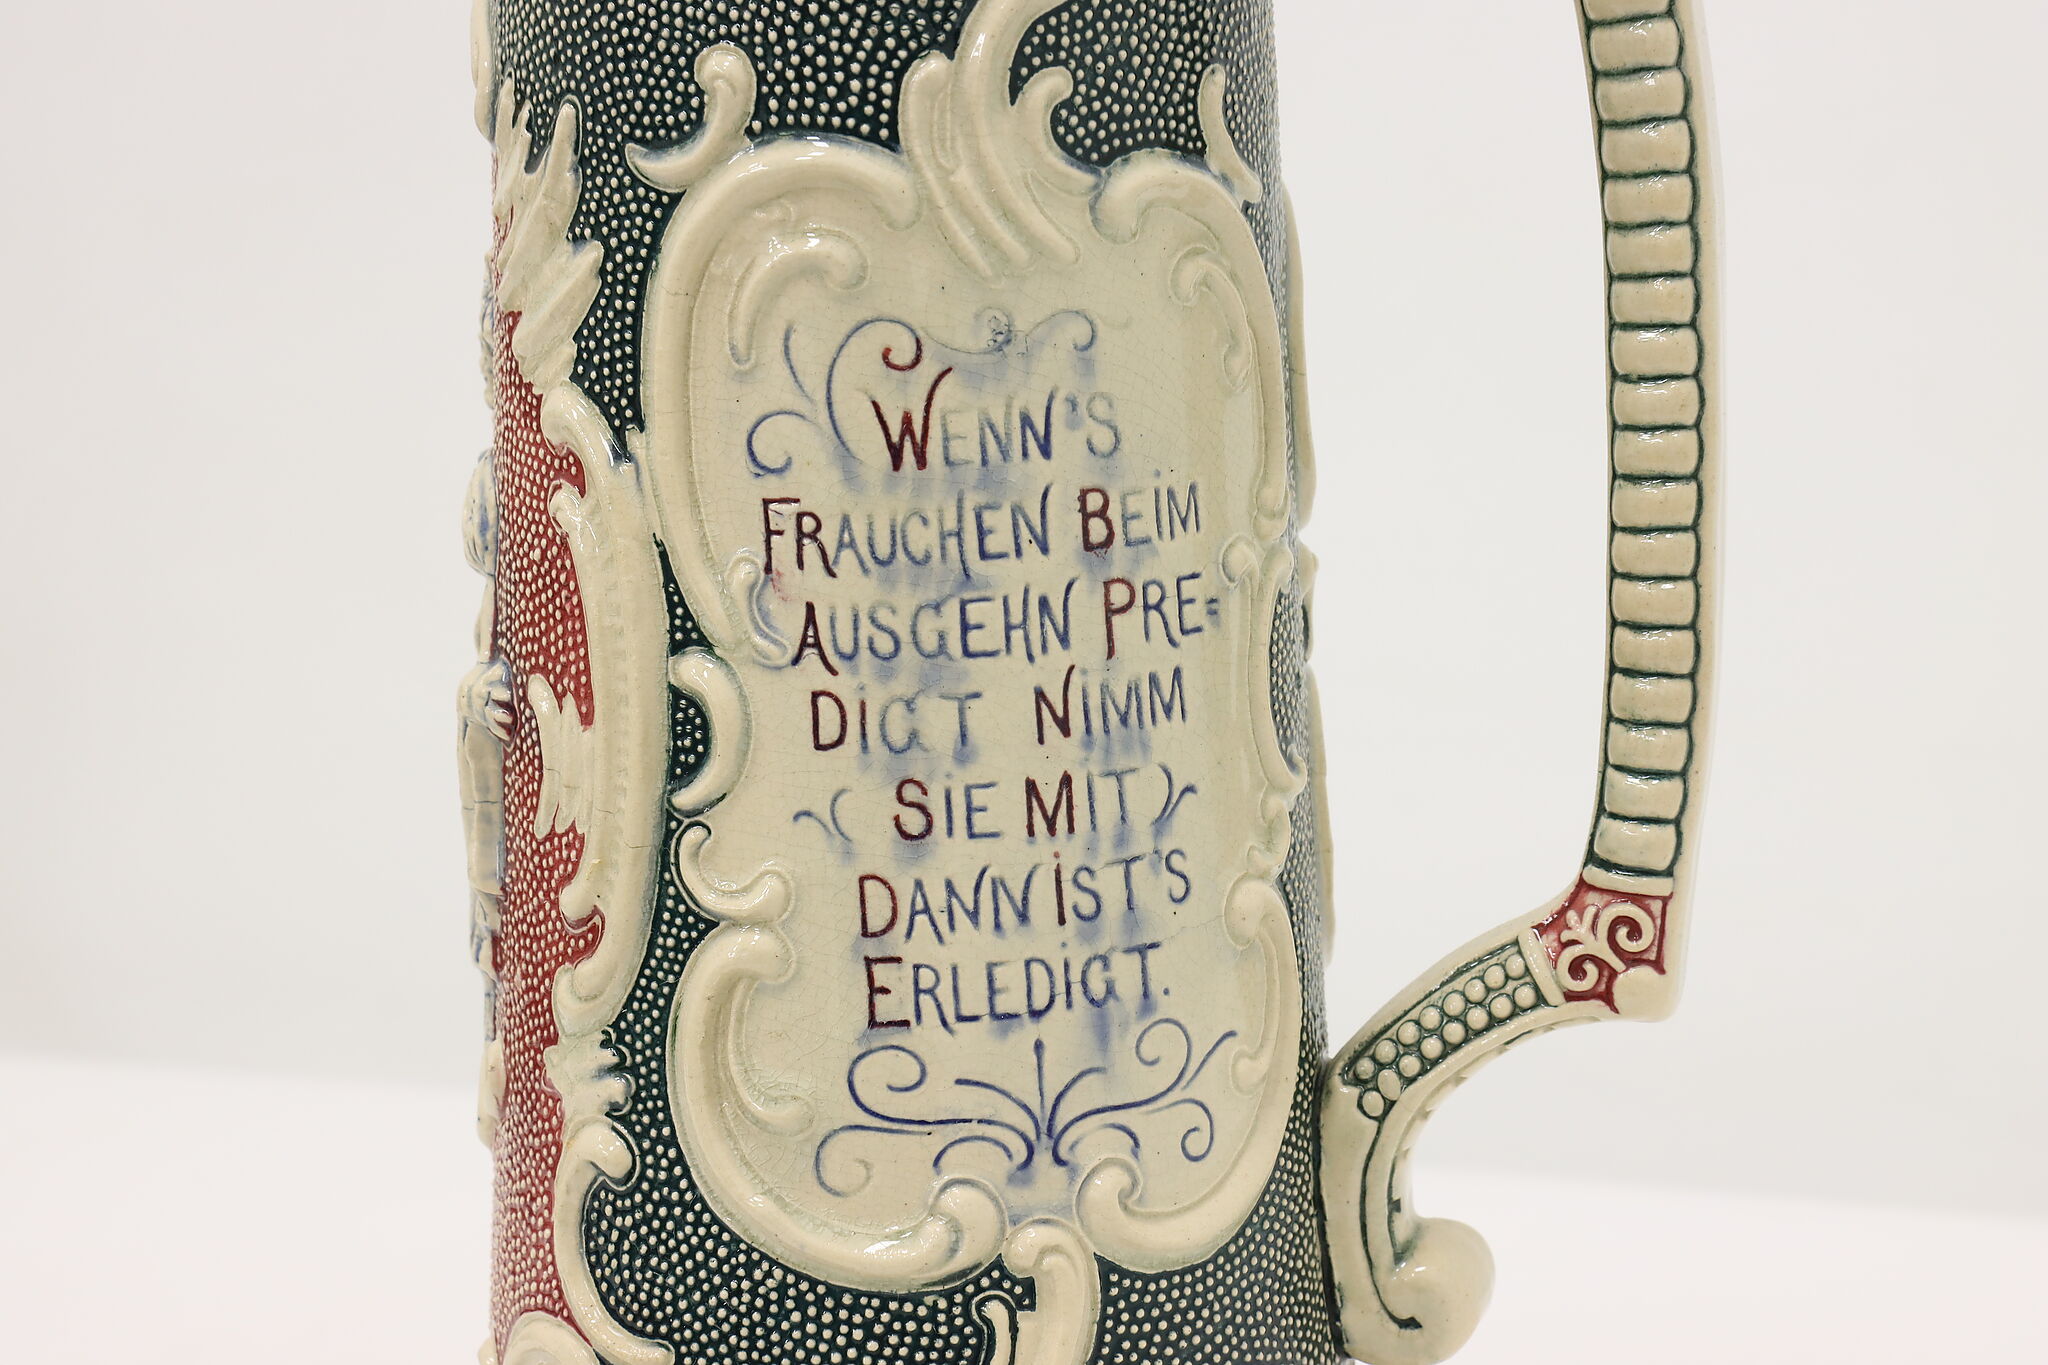 WENN'S
FRAUCHEN BEIM
AUSGEHN PRE=
DIGT NIMM
SIE MIT
DANN IST'S
ERLEDIGT.